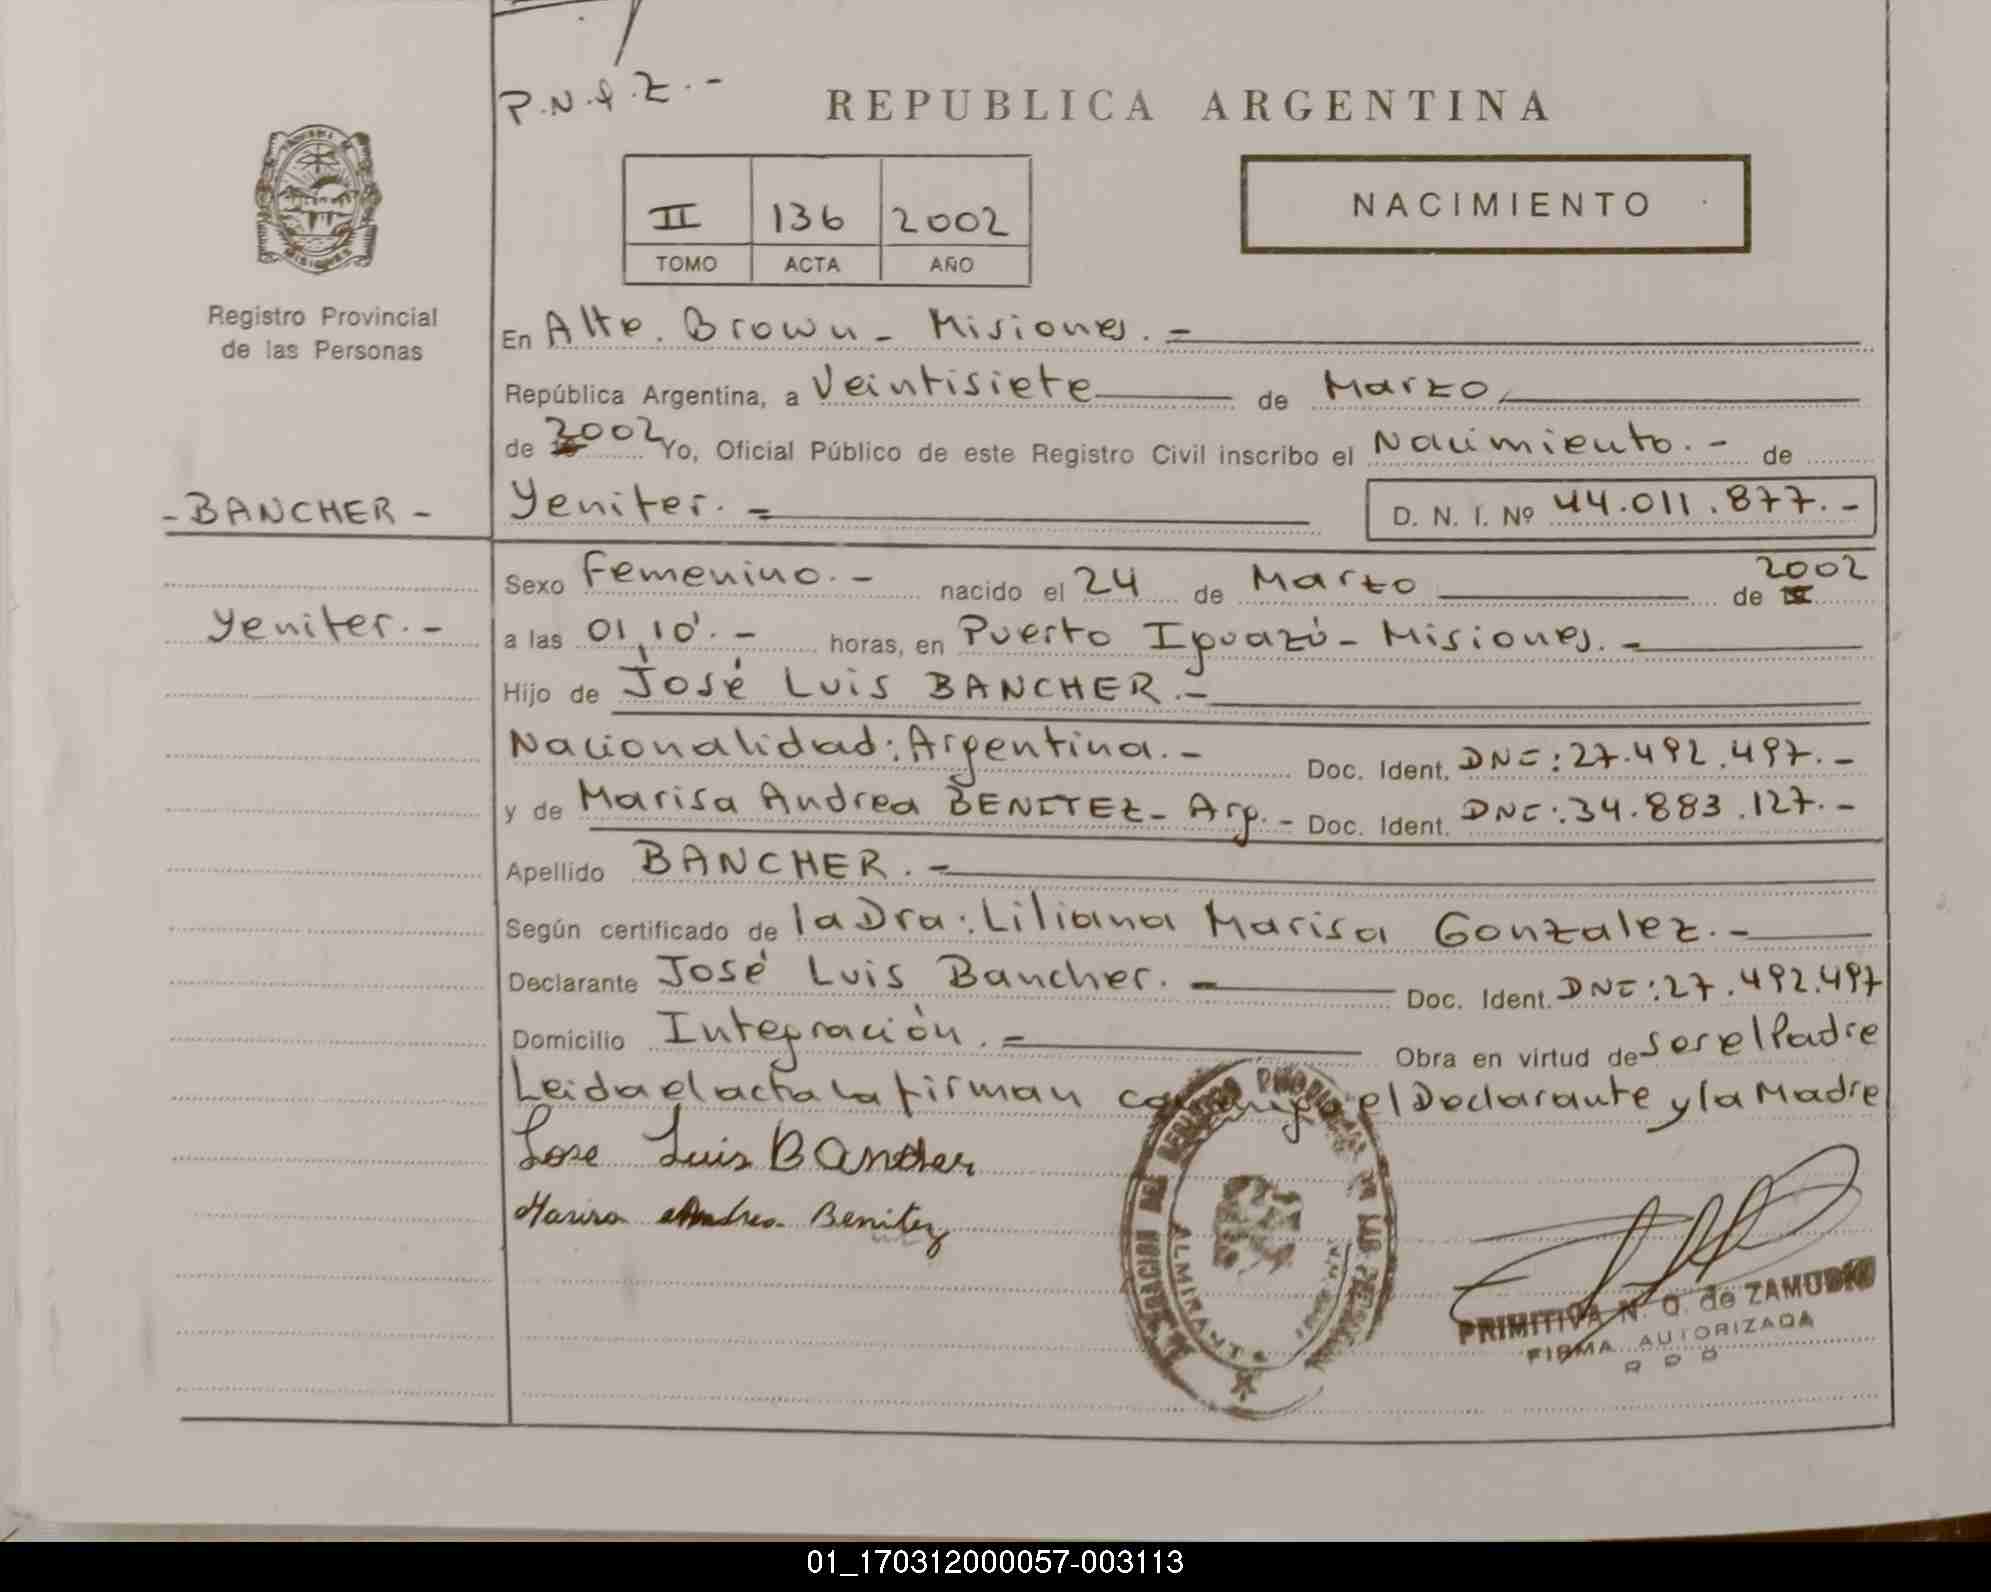 P.N.f.Z.-
REPUBLICA ARGENTINA
II 136 2002
TOMO ACTA AÑO
NACIMIENTO
MISIONES
Registro Provincial
de las Personas
En Alte. Brown - Misiones.-
República Argentina, a Veintisiete de Marzo
de 2002 Yo, Oficial Público de este Registro Civil inscribo el Nacimiento.- de
-BANCHER-
Yeniter.- D. N. I. Nº 44.011.877.-
Sexo Femenino.- nacido el 24 de Marzo de 2002
Yeniter.-
a las 01,10'.- horas, en Puerto Iguazú - Misiones.-
Hijo de José Luis BANCHER.-
Nacionalidad: Argentina.- Doc. Ident. DNI: 27.492.497.-
y de Marisa Andrea BENITEZ - Arg.- Doc. Ident. DNI: 34.883.127.-
Apellido BANCHER.-
Según certificado de la Dra: Liliana Marisa Gonzalez.-
Declarante José Luis Bancher.- Doc. Ident. DNI: 27.492.497
Domicilio Integración.- Obra en virtud de ser el Padre
Leida el acta la firman conmigo el Declarante y la Madre
Jose Luis Bancher
Marisa Andrea Benitez
PRIMITIVA N. G. de ZAMUDIO
FIRMA AUTORIZADA
R P P
01_170312000057-003113